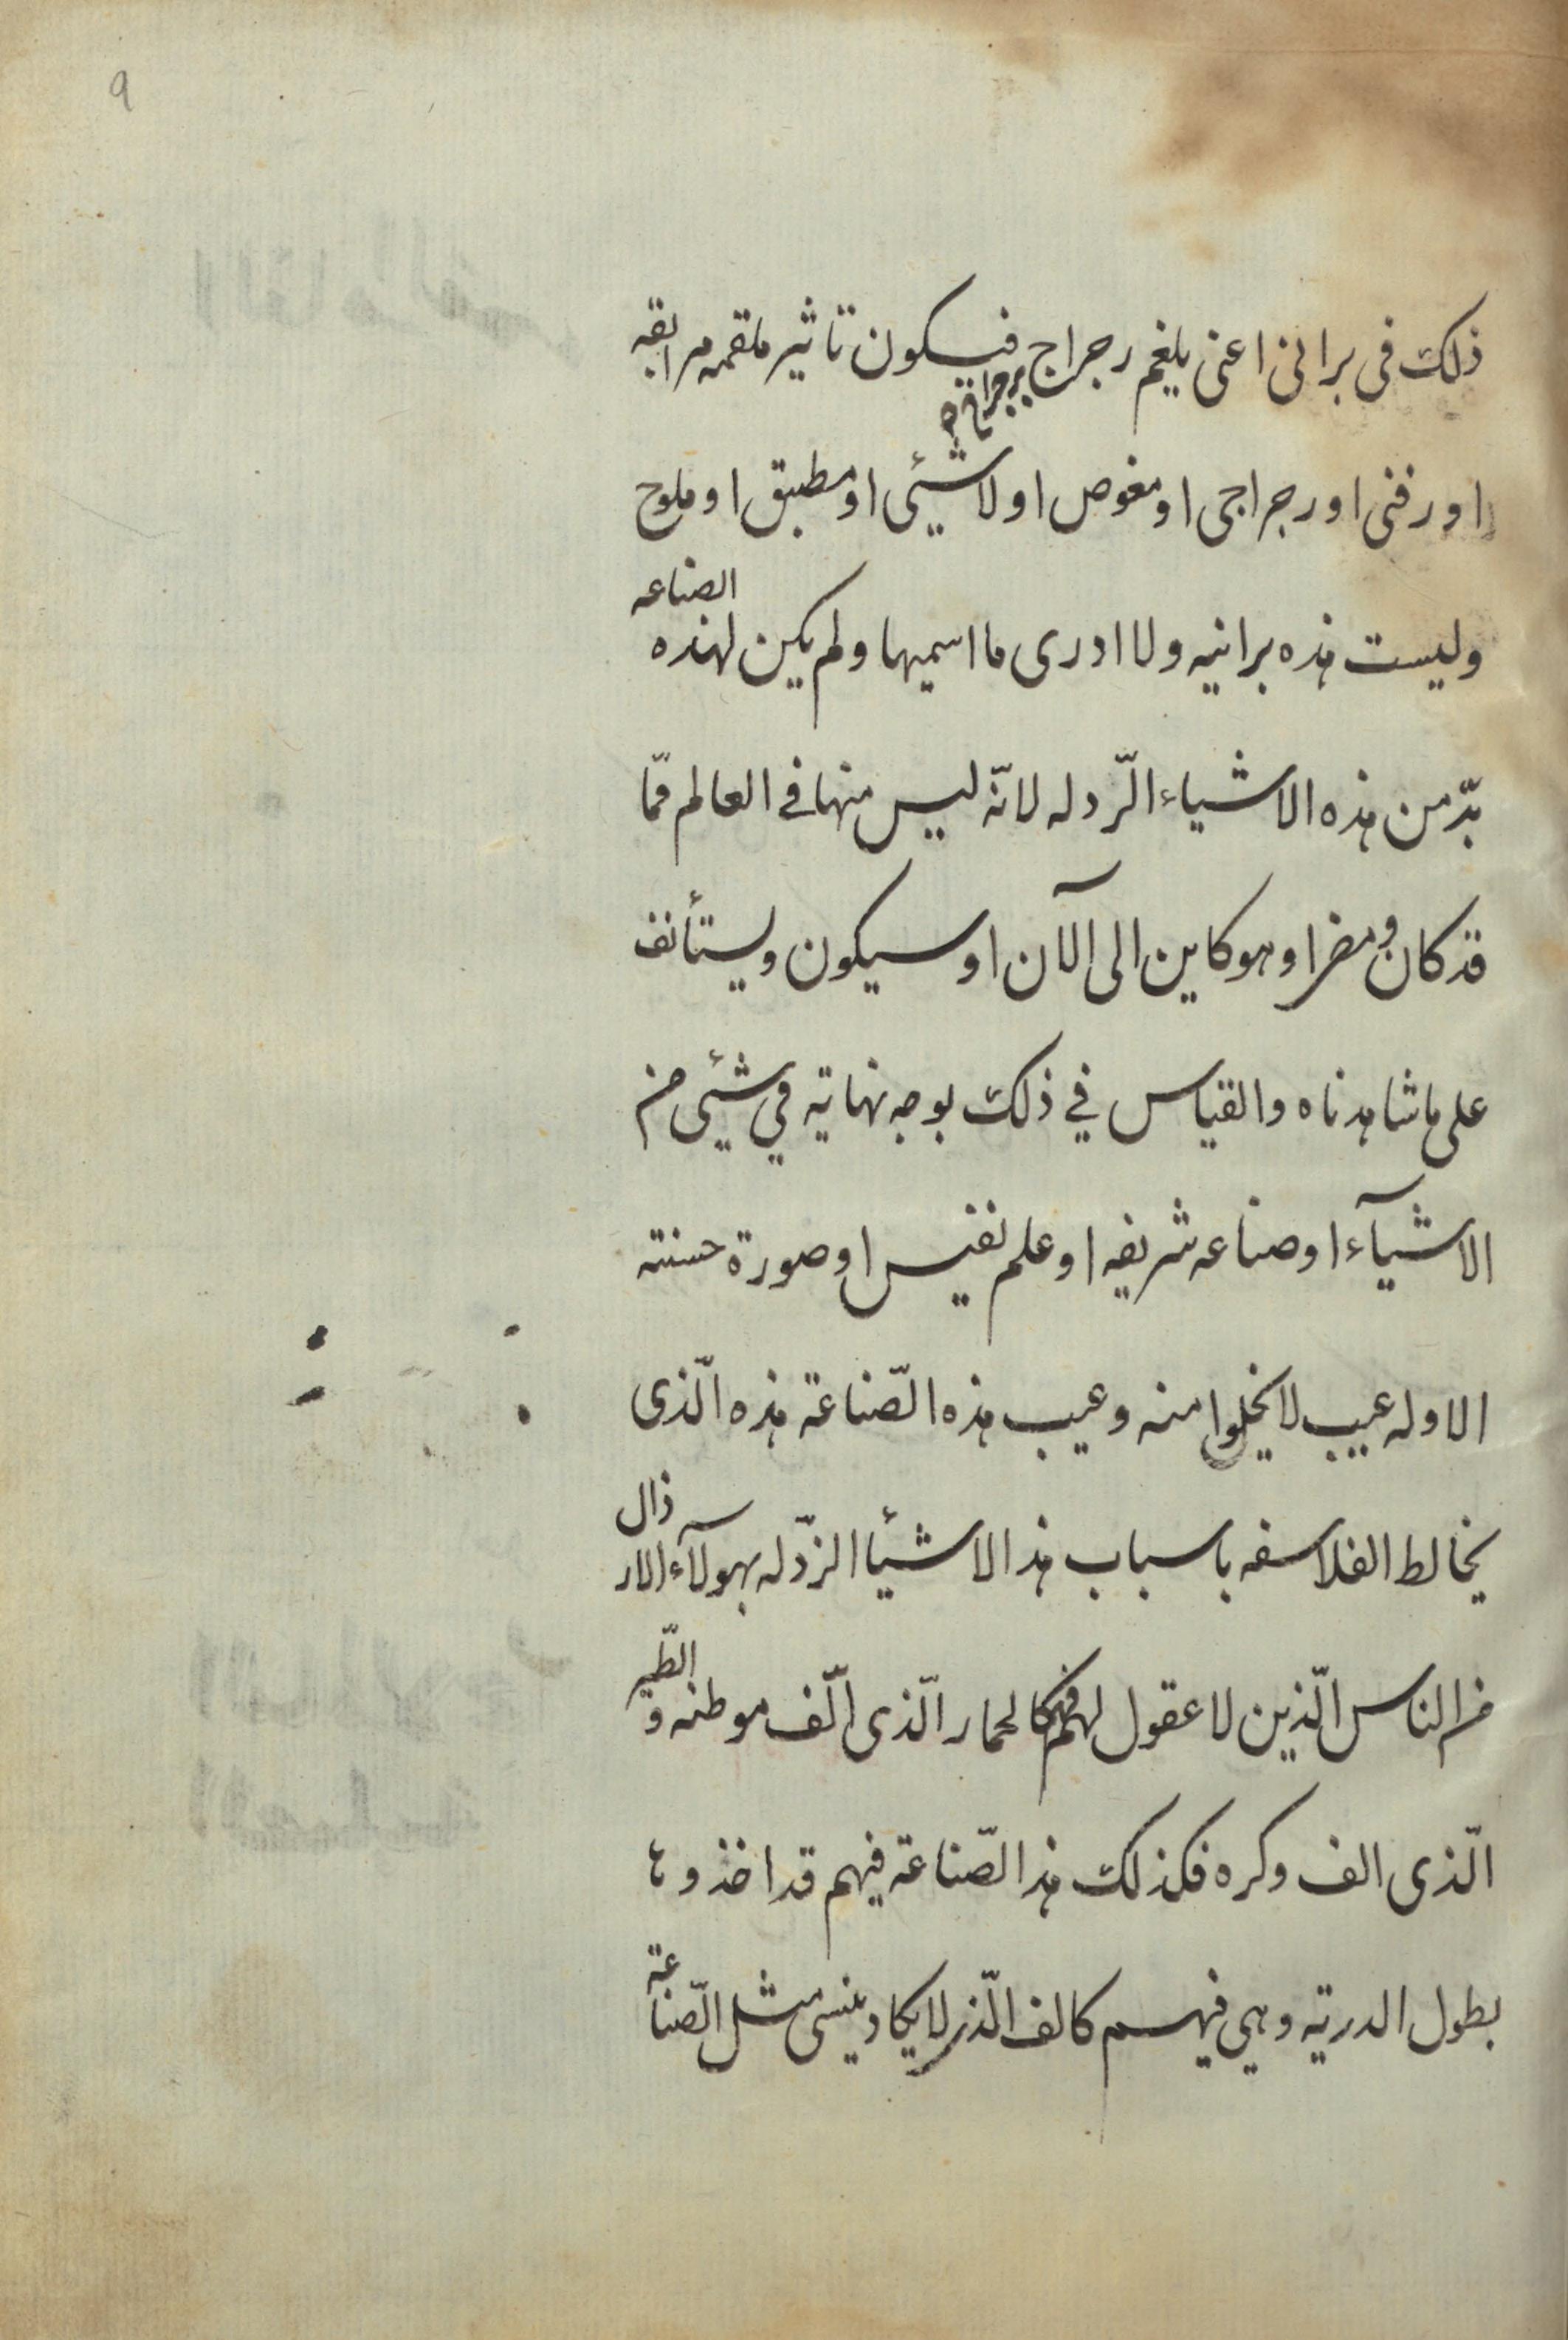 ٩
ذلك فى برانى اعنى يلغم رجراج فيكون تاثير
او رفنى او رجراجى او مغوص او لاشيئى او مطبق او ملوح
وليست هذه برانيه ولا ادرى ما اسميها ولم يكن لهذه الصناعه
بدّ من هذه الاشياء الرّدله لانّه ليس منها فے العالم ممّا
قد كان ومضى او هو كاين الى الآن او سيكون ويستأنف
على ما شاهدناه والقياس في ذلك بوجه نهاية في شيئى من
الاشيآء او صناعه شريفه او علم نفيس او صورة حسنته
الا وله عيب لا يخلوا منه وعيب هذه الصّناعة هذه الّذى
يخالط الفلاسفه باسباب هذا الاشئا الرّدله بهولآء الارذال
من الناس الّذين لا عقول لهم فهم كالحمار الّذى الّف موطنه و الطّير
الّذى الف وكره فكذلك هذا الصّناعة فيهم قد اخذوها
بطول الدربة وهي فيهم كالف الّذى لا يكاد ينسى مثل الصّناعة